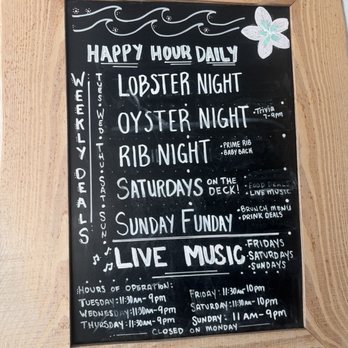 HAPPY HOUR DAILY
WEEKLY DEALS
TUES. WED. THU. SAT. SUN.
LOBSTER NIGHT
OYSTER NIGHT
• Trivia
7-9pm
RIB NIGHT
• PRIME RIB
• BABY BACK
SATURDAYS ON THE DECK!
• LIVE MUSIC
SUNDAY FUNDAY
• BRUNCH MENU
• DRINK DEALS
LIVE MUSIC
• FRIDAYS
• SATURDAYS
• SUNDAYS
HOURS OF OPERATION:
TUESDAY: 11:30AM-9pm
WEDNESDAY: 11:30AM-9pm
THURSDAY: 11:30AM-9pm
FRIDAY: 11:30AM-10pm
SATURDAY: 11:30AM-10pm
SUNDAY: 11AM-9pm
CLOSED ON MONDAY